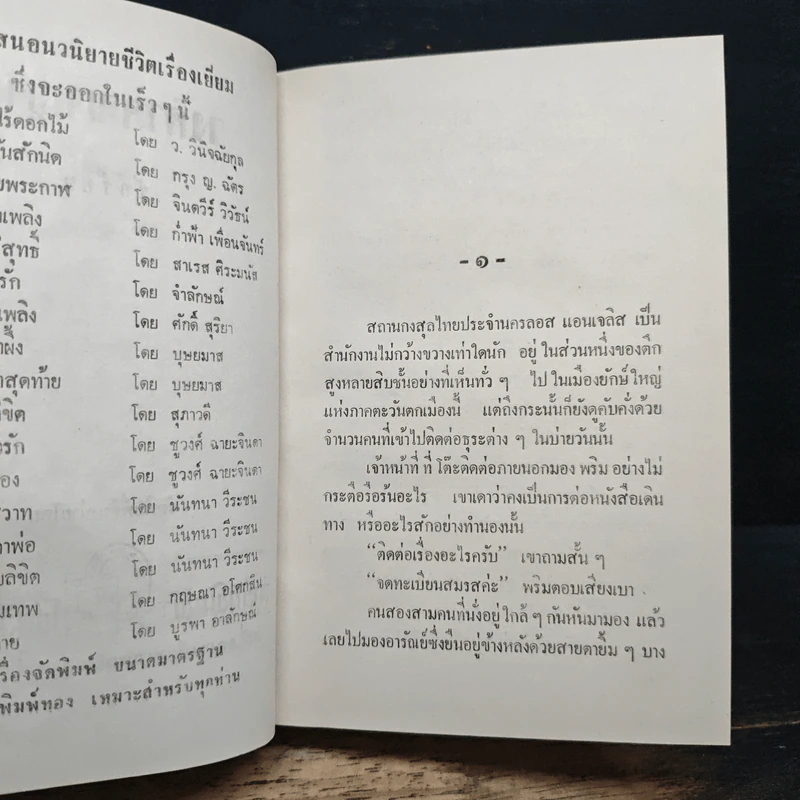 สนอนวนิยายชีวิตเรื่องเยี่ยม
ซึ่งจะออกในเร็ว ๆ นี้
ไร้ดอกไม้ โดย ว. วินิจฉัยกุล
โดย กรุง ญ. ฉัตร
โดย จินตวีร์ วิวัธน์
เพลิง โดย ก่ำฟ้า เพื่อนจันทร์
สุทธิ์ โดย สาเรส ศิระมนัส
รัก โดย จำลักษณ์
เพลิง โดย ศักดิ์ สุริยา
โดย บุษยมาส
สุดท้าย โดย บุษยมาส
โดย สุภาวดี
รัก โดย ชูวงศ์ ฉายะจินดา
โดย ชูวงศ์ ฉายะจินดา
สวาท โดย นันทนา วีระชน
โดย นันทนา วีระชน
ลิขิต โดย นันทนา วีระชน
เทพ โดย กฤษณา อโศกสิน
โดย บูรพา อาลักษณ์
รื่องจัดพิมพ์ ขนาดมาตรฐาน
พิมพ์ทอง เหมาะสำหรับทุกท่าน
- ๑ -
สถานกงสุลไทยประจำนครลอส แอนเจลิส เป็น
สำนักงานไม่กว้างขวางเท่าใดนัก อยู่ ในส่วนหนึ่งของตึก
สูงหลายสิบชั้นอย่างที่เห็นทั่ว ๆ ไป ในเมืองยักษ์ ใหญ่
แห่งภาคตะวันตกเมืองนี้ แต่ถึงกระนั้นก็ยังดูคับคั่งด้วย
จำนวนคนที่เข้าไปติดต่อธุระต่าง ๆ ในบ่ายวันนั้น
เจ้าหน้าที่ ที่ โต๊ะติดต่อภายนอกมอง พริม อย่างไม่
กระตือรือร้นอะไร เขาเดาว่าคงเป็นการต่อหนังสือเดิน
ทาง หรืออะไรสักอย่างทำนองนั้น
“ติดต่อเรื่องอะไรครับ” เขาถามสั้น ๆ
“จดทะเบียนสมรสค่ะ” พริมตอบเสียงเบา
คนสองสามคนที่นั่งอยู่ ใกล้ ๆ กันหันมามอง แล้ว
เลยไปมองอารัณย์ซึ่งยืนอยู่ข้างหลังด้วยสายตายิ้ม ๆ บาง